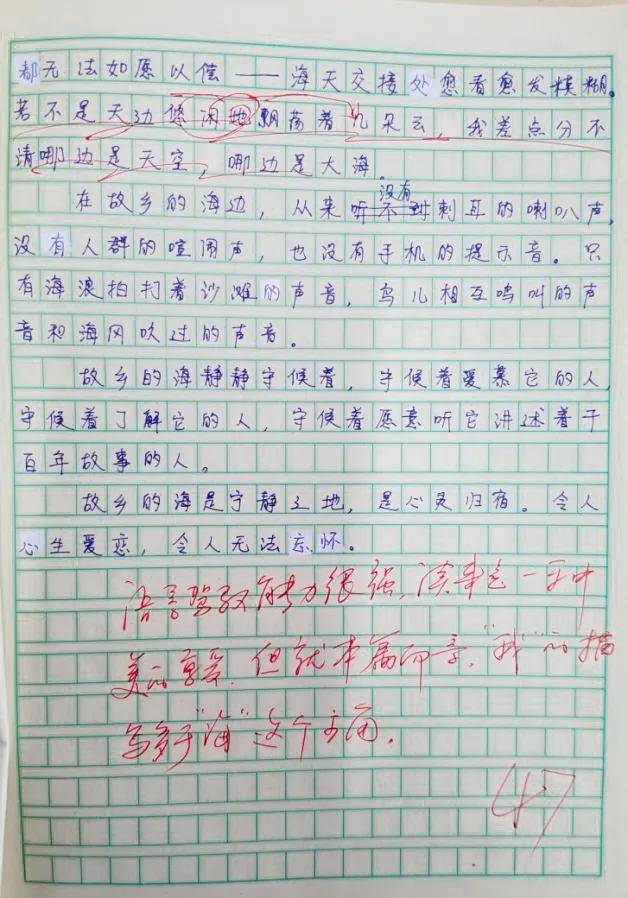 都无法如愿以偿——海天交接处愈看愈发模糊。
若不是天边悠闲地飘荡着几朵云，我差点分不
请哪边是天空，哪边是大海。
没有
在故乡的海边，从来听不到刺耳的喇叭声，
没有人群的喧闹声，也没有手机的提示音。只
有海浪拍打着沙滩的声音，鸟儿相互鸣叫的声
音和海风吹过的声音。
故乡的海静静守候着，守候着爱慕它的人，
守候着了解它的人，守候着愿意听它讲述着千
百年故事的人。
故乡的海是宁静之地，是心灵归宿。令人
心生爱恋，令人无法忘怀。
语言驾驭能力很强，读来是一种
美的享受，但就本篇而言，"我"的描
写多于"海"这个主角。
47